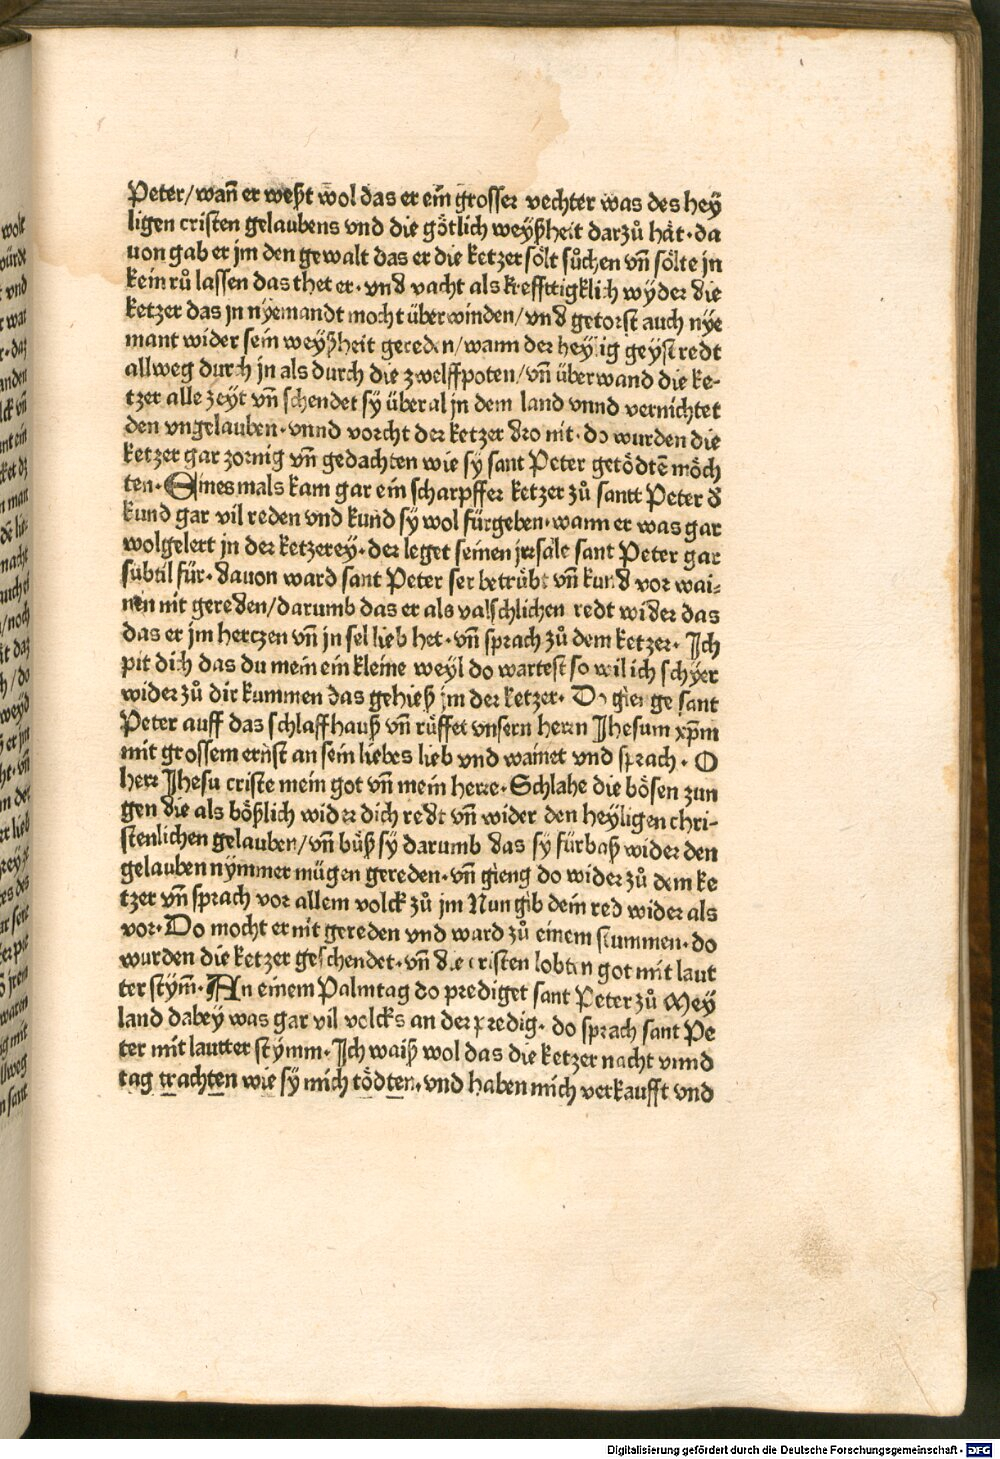 Peter/wañ er weyßt wol das er ein grosser vechter was des hey
ligen cristen gelaubens vnd die götlich weyßheit darzů håt· da
uon gab er jm den gewalt das er die ketzer sölt sůchen vñ sölte jn
kein rů lassen das thet er· vnd vacht als krefftigklich wyder die
ketzer das jn nyemandt mocht überwinden/ vnd getorst auch nye
mant wider sein weyßheit gereden/ wann der heylig geyst redt
allweg durch jn als durch die zwelffpoten/ vñ überwand die ke-
tzer alle zeyt vñ schendet sy überal jn dem land vnnd vernichtet
den vngelauben· vnnd vorcht der ketzer dro nit· do wurden die
ketzer gar zornig vñ gedachten wie sy sant Peter getödtē möch
ten· Eines mals kam gar ein scharpffer ketzer zů santt Peter d
kund gar vil reden vnd kund sy wol fürgeben· wann er was gar
wolgelert jn der ketzerey· der leget seinen jrrsale sant Peter gar
subtil für· dauon ward sant Peter ser betrübt vñ kund vor wai-
nen nit gereden/ darumb das er als valschlichen redt wider das
das er jm hertczen vñ jn sel lieb het· vñ sprach zů dem ketzer· Ich
pit dich das du mein ein kleine weyl do wartest so wil ich schyer
wider zů dir kummen das gehieß jm der ketzer· Do gienge sant
Peter auff das schlaffhauß vñ růffet vnsern herrn Jhesum xp̄m
mit grossem ernst an sein liebes lieb vnd wainet vnd sprach· O
herr Jhesu criste mein got vñ mein herre· Schlahe die bösen zun
gen die als bößlich wider dich redt vñ wider den heyligen chri-
stenlichen gelauben/ vñ büß sy darumb das sy fürbaß wider den
gelauben nymmer mügen gereden· vñ gieng do wider zů dem ke
tzer vñ sprach vor allem volck zů jm Nun gib dein red wider als
vor· Do mocht er nit gereden vnd ward zů einem stummen· do
wurden die ketzer geschendet· vñ die cristen lobten got mit laut
ter stym̄· An einem Palmtag do prediget sant Peter zů Mey
land dabey was gar vil volcks an der predig· do sprach sant Pe
ter mit lautter stymm· Ich waiß wol das die ketzer nacht vnnd
tag trachten wie sy mich tödten· vnd haben mich verkaufft vnd
Digitalisierung gefördert durch die Deutsche Forschungsgemeinschaft - DFG